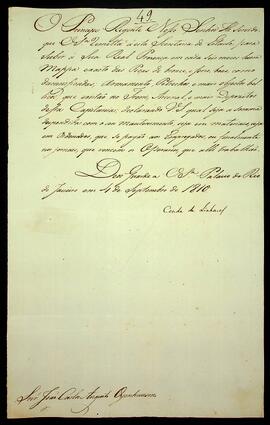 49
O Principe Regente Nosso Senhor He Servido,
que V. S.ª remetta a esta Secretaria de Estado, para
subir á Sua Real Presença em cada seis mezes hum
Mappa exacto das Peças de bronze, e ferro, boas, como
damnificadas, Armamento, Petrechos, e mais objectos bel-
licos, que existão no Trem, Arsenal, e mais Depozitos
dessa Capitania, declarando V. S.ª qual seja a
despendida com o seu mantimento, seja em materiaes, seja
em Ordenados, que se pagão aos Empregados, ou finalmente
nos jornaes, que vencem os Operarios, que alli trabalhão.
Deos Guarde a V. S.ª Palacio do Rio
de Janeiro em 4 de Septembro de 1810.
Conde de Linhares
Snr. João Carlos Augusto Oyenhausen